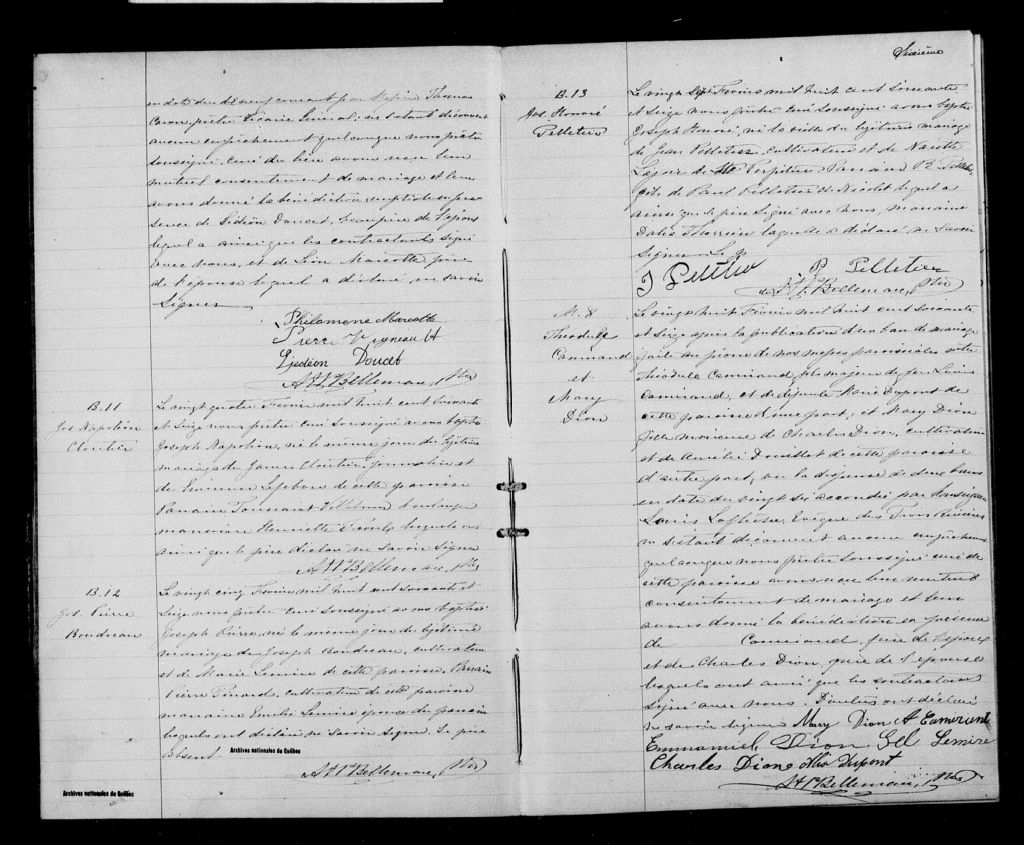 en date du dix neuf courant par Messire Thomas
Caron, prêtre Vicaire Général; ne s'étant découvert
aucun empêchement quelconque nous prêtre
soussigné, curé du lieu avons reçu leur
mutuel consentement de mariage et leur
avons donné la bénédiction nuptiale en pré
sence de Gédéon Doucet, beau père de l'époux
lequel a ainsi que les contractants signé
avec nous, et de Léon Marcotte père
de l'épouse lequel a déclaré ne savoir
signer
Philomene Marcotte
Pierre Vigneault
Gedéon Doucet
A. H. Bellemare, Ptre
B. 11
Jos Napoléon
Cloutier
Le vingt quatre Février mil huit cent soixante
et seize nous prêtre curé soussigné avons baptisé
Joseph Napoléon, né le même jour du légitime
mariage de James Cloutier, journalier et
de Lefebvre de cette paroisse
Parrain Toussaint
marraine Henriette lesquels ont
ainsi que le père déclaré ne savoir signer
A H Bellemare, Ptre
B. 12
Jos. Pierre
Boudreau
Le vingt cinq Février mil huit cent soixante et
seize nous prêtre curé soussigné avons baptisé
Joseph Pierre, né le même jour du légitime
mariage de Joseph Boudreau, cultivateur
et de Marie Lemire de cette paroisse. Parrain
Pierre Pinard, cultivateur de cette paroisse
marraine Emilie Lemire épouse du parrain
lesquels ont déclaré ne savoir signer. Le père
absent
Archives nationales du Québec
A H Bellemare, Ptre
Archives nationales du Québec
Sixième
B. 13
Jos. Honoré
Pelletier
Le vingt sept Février mil huit cent soixante
et seize nous prêtre curé soussigné avons baptisé
Joseph Honoré, né la veille du légitime mariage
de Jean Pelletier, cultivateur et de
de Ste Perpétue Parrain P. Pelletier,
fils de Paul Pelletier de Nicolet lequel a
ainsi que le père signé avec nous, marraine
Therrien laquelle a déclaré ne savoir
signer
J Peletier P Pelletier
A. H. Bellemare, Ptre
M. 8
Théodule
Camirand
et
Mary
Dion
Le vingt huit Février mil huit cent soixante
et seize après la publication d'un ban de mariage
faite au prône de nos messes paroissiales entre
Théodule Camirand, fils majeur de feu Louis
Camirand, et de défunte Marie Dupont de
cette paroisse d'une part, et Mary Dion
fille mineure de Charles Dion, cultivateur
et de Amélie Douillet de cette paroisse
d'autre part, vu la dispense de deux bans
en date du vingt six accordée par Monseigneur
Louis Laflèche, Evêque des Trois Rivières
ne s'étant découvert aucun empêchement
quelconque nous prêtre soussigné curé de
cette paroisse avons reçu leur mutuel
consentement de mariage et leur
avons donné la bénédiction en présence
de Camirand, frère de l'époux
et de Charles Dion, père de l'épouse
lesquels ont ainsi que les contractants
signé avec nous. D'autres ont déclaré
ne savoir signer Mary Dion A Camirant
Emmanuel Dion Gel Lemire
Charles Dion Dupont
A H Bellemare, Ptre